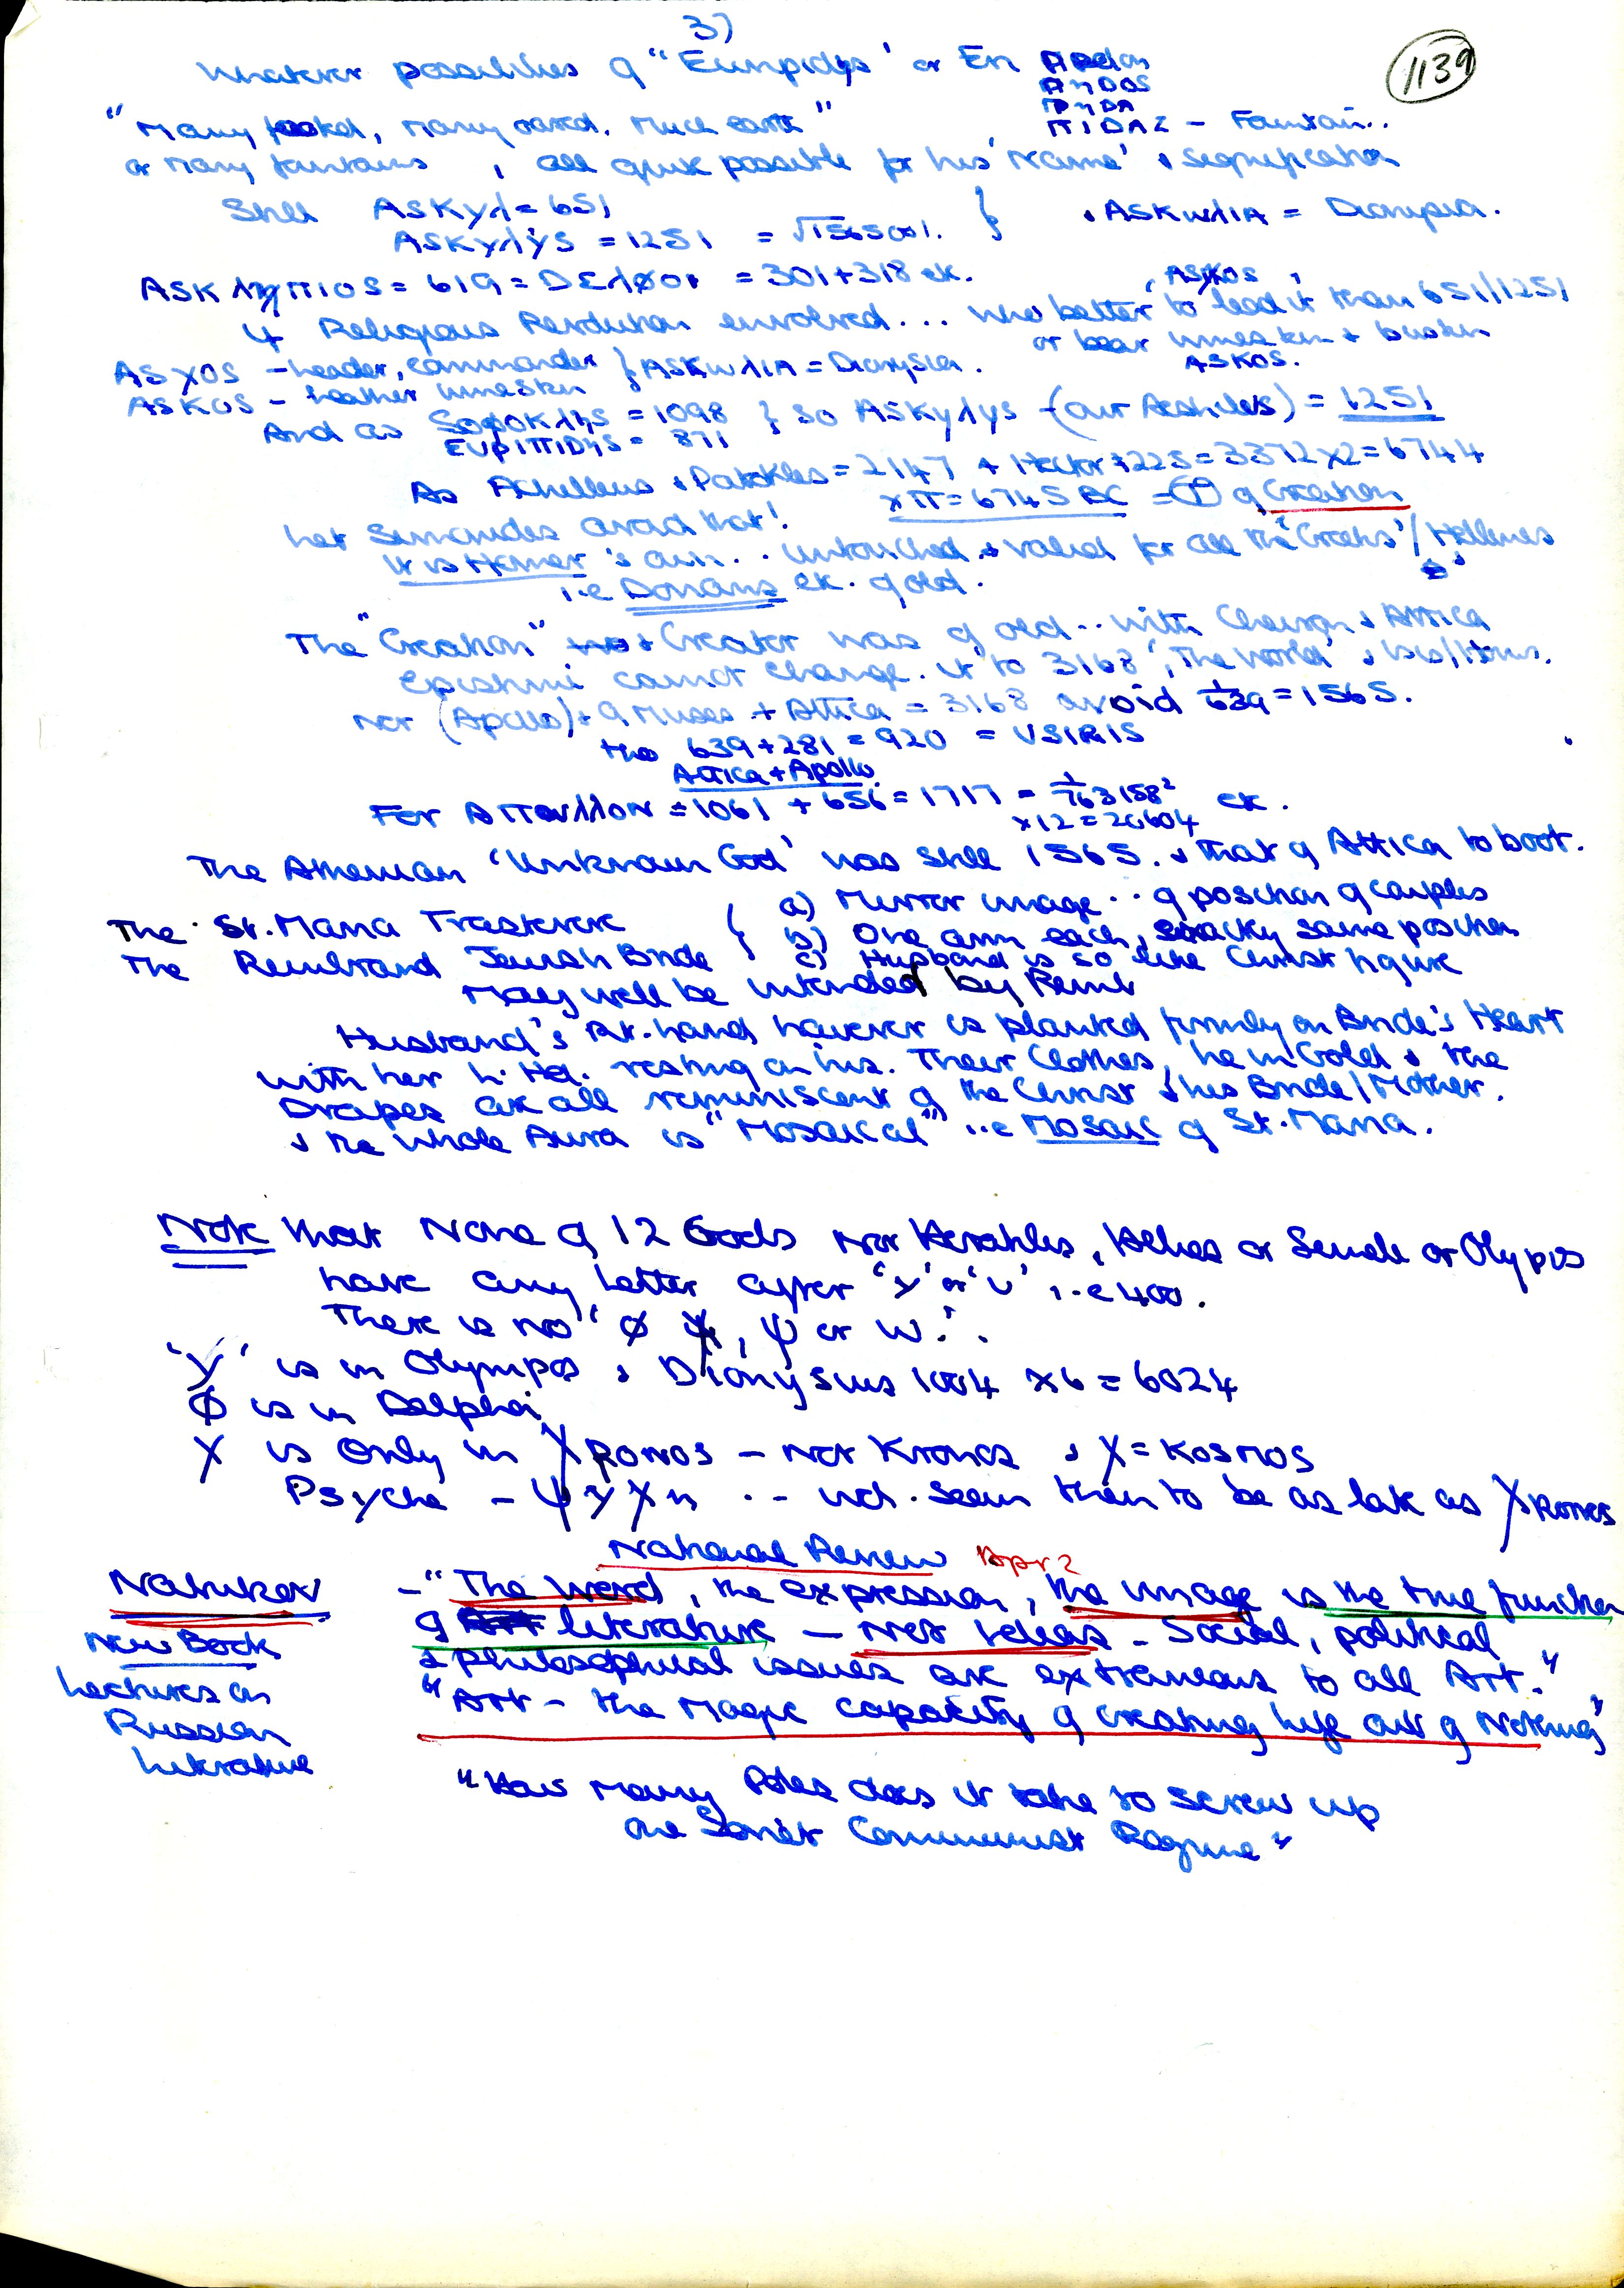 37
1139
Whatever possibilities of "Euripidys' or Eu
PηDOS
PηDA
ΠIDAZ - Fountain..
"Many footed, Many oared, Much earth"
or many fountains, all quite possible for his 'Name' & signification
Still ASKyλ = 651
ASKyλyS = 1251 = √1565001. } & ASKωλIA = Dionysia.
ASKληΠIOS = 619 = DΣλØOI = 301+318 etc.
If Religious Revolution involved... Who better to lead it than 651/1251
or bear wineskin & buskin
ASKOS.
ASXOS - leader, commander } ASKωλIA = Dionysia.
ASKOS - leather wineskin
And as SOØOKληS = 1098 } So ASKyλyS - (our Aeschiles) = 1251
EUPIΠIDηS = 871
As Achilleus & Patrokles = 2147 + Hector 1225 = 3372 x2 = 6744
xΠ = 6745 BC = ① of Creation
Let Simonides avoid that!
It is Homer's own.. untouched & valid for all the 'Greeks' / Hellenes
i.e Donans etc. of old.
The "Creation" & Creator was of old.. with Cleisthn & Attica
cannot change it to 3168, 'The World' &
Nor (Apollo) + 9 Muses + Attica = 3168 avoid 1/639 = 1565.
the 639+281 = 920 = USIRIS
Attica + Apollo
For AΠoλλωN = 1061 + 656 = 1717 = 1/763158² etc.
x12 = 20604
The Athenian 'Unknown God' was still 1565. & that of Attica to boot.
The St. Maria Trastevere { a) Mirror image.. of position of couples
b) One arm each, exactly same position
The Rembrand Jewish Bride c) Husband is so like Christ figure
May well be intended by Remb
Husband's Rt. hand however is planted firmly on Bride's Heart
with her L. Hd. resting on his. Their Clothes, he in Gold & the
Drapes are all reminiscent of the Christ & his Bride/Mother.
& the whole Aura is "Mosaical" i.e Mosaic of St. Maria.
Note that None of 12 Gods Nor Herakles, Helios or Semele or Olypos
have any letter after 'y' or 'u' i.e 400.
There is no 'Ø X, ψ or w'.
'y' is in Olympos & Dionysius 1004 x6 = 6024
Ø is in Delphoi
X is Only in XRONOS - Not Kronos & X = KOSMOS
Psyche - ψyXη .. wd. seem then to be as late as Xronos
National Review Apr 2
Nabukov - "The Word, the expression, the image is the true function
of literature - Not Ideas - Social, political
New Book
& philosophical issues are extraneous to all Art."
Lectures on
"Art - the Magic capacity of creating life out of Nothing"
Russian
Literature
"How Many Poles does it take to screw up
one Soviet Communist Regime"